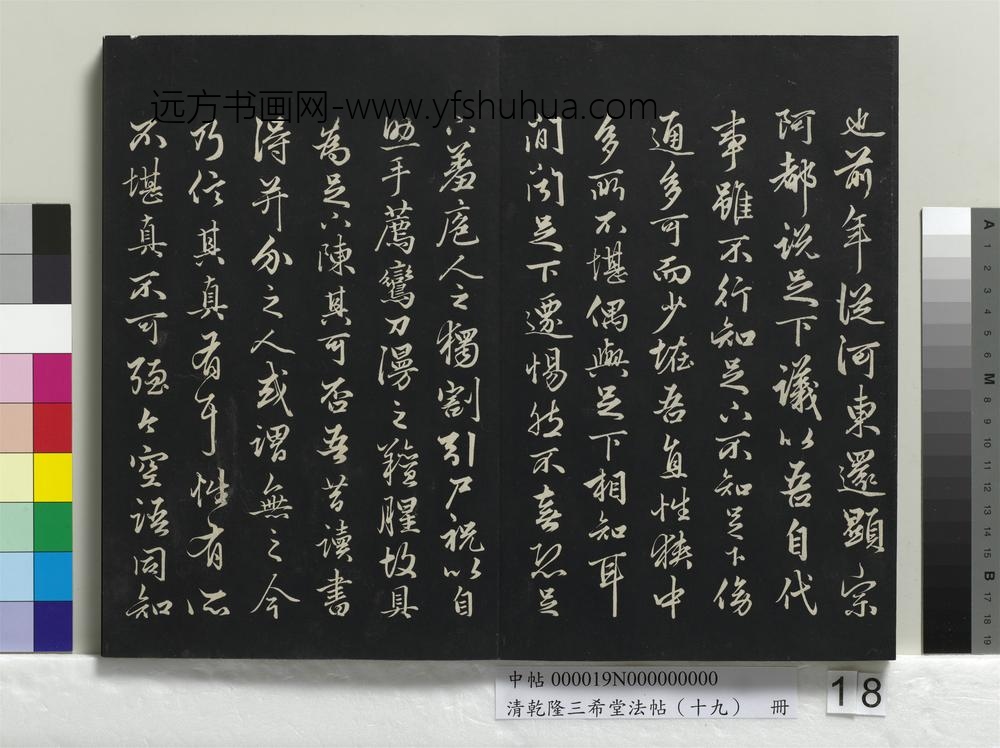 远方书画网-www.yfshuhua.com
也前年從河東還顯宗
阿都說足下議以吾自代
事雖不行知足下不知足下傍
通多可而少怪吾直性狹中
多所不堪偶與足下相知耳
間聞足下遷惕然不喜恐足
下羞庖人之獨割引尸祝以自
助手薦鸞刀漫之羶腥故具
為足下陳其可否吾昔讀書
得并介之人或謂無之今
乃信其真有耳性有所
不堪真不可強今空語同知
中帖 000019N000000000
清乾隆三希堂法帖（十九） 冊
18
A 1 2 3 4 5 6 M 8 9 10 11 12 13 14 15 B 17 18 19